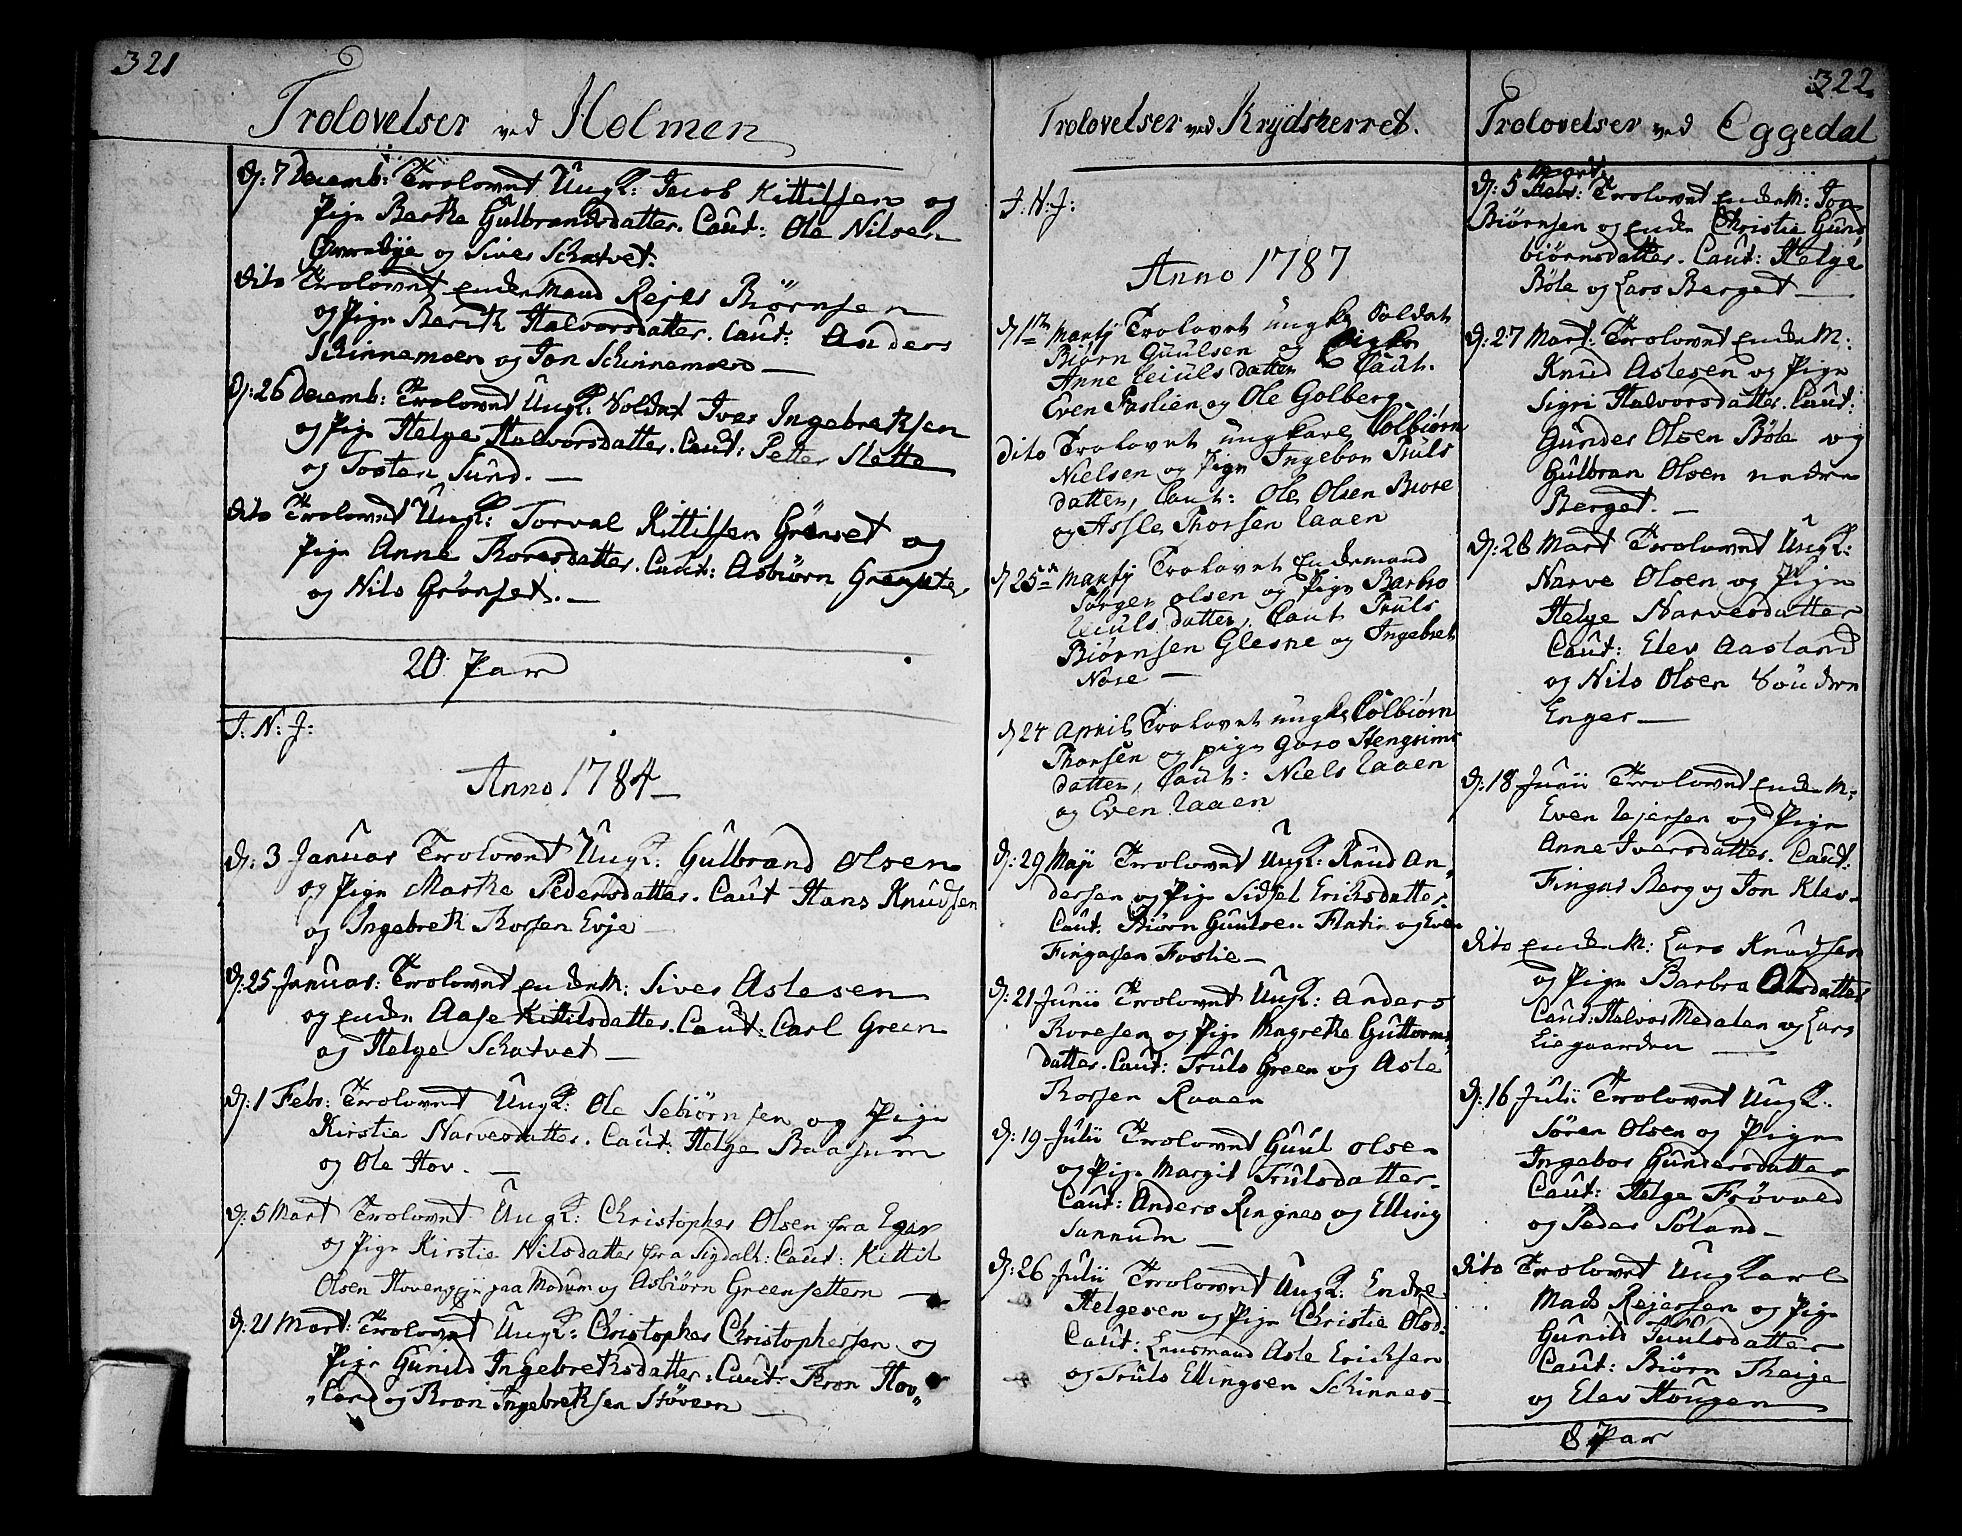 321
Trolovelser ved Holmen
D: 7 Decemb: Trolovet Ungk: Jacob Kittilsen og
Pige Barthe Gulbrandsdatter. Caut: Ole Nilsen
og Siver Schatvet.
dito Trolovet Enckemand Rejer Biørnsen
og Pige Berith Halvorsdatter. Caut: Anders
Schinnemoen og Jon Schinnemoen —
D: 26 Decemb: Trolovet Ungk: Soldat Iver Ingebrethsen
og Pige Helge Halvorsdatter. Caut: Petter Slette
og Tosten Sund. —
dito Trolovet Ungk: Torval Kittilsen Grønset og
Pige Anne Thoresdatter. Caut: Asbiørn
og Nils Grønset. —
20 Par
J: N: J:
Anno 1784 —
D: 3 Januar Trolovet Ungk: Gulbrand Olsen
og Pige Marthe Pedersdatter. Caut Hans Knudsen
og Ingebreth Thorsen Evje —
D: 25 Januar: Trolovet Enckem: Siver Aslesen
og Encken Aase Kittilsdatter. Caut: Carl Green
og Helge Schatvet —
D: 1 Febr: Trolovet Ungk: Ole Sebiørnsen og Pige
Kirstie Narvesdatter. Caut: Helge Baasum
og Ole Hov. —
D: 5 Mart Trolovet Ungk: Christopher Olsen fra Eger
og Pige Kirstie Nilsdatter fra Sigdal: Caut: Kittil
Olsen paa Modum og Asbiørn Greensettern —
D: 21 Mart: Trolovet Ungk: Christopher Christophersen og
Pige Gunild Ingebrethsdatter. Caut: Thron Hov„
„land og Thron Ingebrethsen Støvern —
Trolovelser ved Krydsherret.
J: N: J:
Anno 1787
D 1te Martij Trolovet ungk Soldat
Biørn Guulsen og Pigen
Anne datter Caut.
Even Faslien og Ole Golberg
dito Trolovet ungkarl Colbiørn
Nielsen og Pige Ingebor Truls
datter, Caut: Ole Olsen Biore
og Assle Thorsen Raaen
D 25de Martij Trolovet Enckemand
Tørger Olsen og Pige Barbro
datter, Caut Truls
Biørnsen Glesne og Ingebret
Nøse —
D 24 April Trolovet ungk Colbiørn
Thorsen og pige Goro
datter, Caut: Niels Raaen
og Even Raaen
D: 29 Maji Trolovet Ungk: Knud An„
dersen og Pige Sidsel Ericksdatter.
Caut Biørn Guulsen Flatin og Even
Fingarsen Foslie —
D: 21 Junii Trolovet Ungk: Anders
Thoresen og Pige Magrethe Guttorms„
datter. Caut: Truls Green og Asle
Thorsen Raaen
D: 19 Julii Trolovet Guul Olsen
og Pige Margit Trulsdatter.
Caut: Anders Ringnes og Elling
Sannum —
D: 26 Julii Trolovet Ungk: Endre
Helgesen og Pige Christie Olsd.
Caut: Lensmand Asle Ericksen
og Truls Ellingsen Schinnes —
322
Trolovelser ved Eggedal
D: 5 Mart: Trolovet Enckem: Jon
Biørnsen og Encken Christie Gun„
biørnsdatter. Caut: Helge
Bøle og Lars Berget —
D: 27 Mart: Trolovet Enckem:
Knud Aslesen og Pige
Sigri Halvorsdatter. Caut:
Gunder Olsen Bøle og
Gulbran Olsen nedre
Berget. —
D: 28 Mart Trolovet Ungk:
Narve Olsen og Pige
Helge Narvesdatter
Caut: Elev Aasland
og Nils Olsen Søndre
Enger —
D: 18 Junii Trolovet Enckem:
Even Rejersen og Pige
Anne Iversdatter. Caut:
Fingar Berg og Jon Klev —
dito Enckem: Lars Knudsen
og Pige Barbra Olsdatter
Caut: Halvor Medalen og Lars
Liegaarden —
D: 16 Julii Trolovet Ungk:
Søren Olsen og Pige
Ingebor Gundersdatter
Caut: Helge Frøvold
og Peder Søland —
dito Trolovet Ungkarl
Mads Rejersen og Pige
Gunild Juulsdatter
Caut: Biørn Theige
og Elev Hougen
8 Par